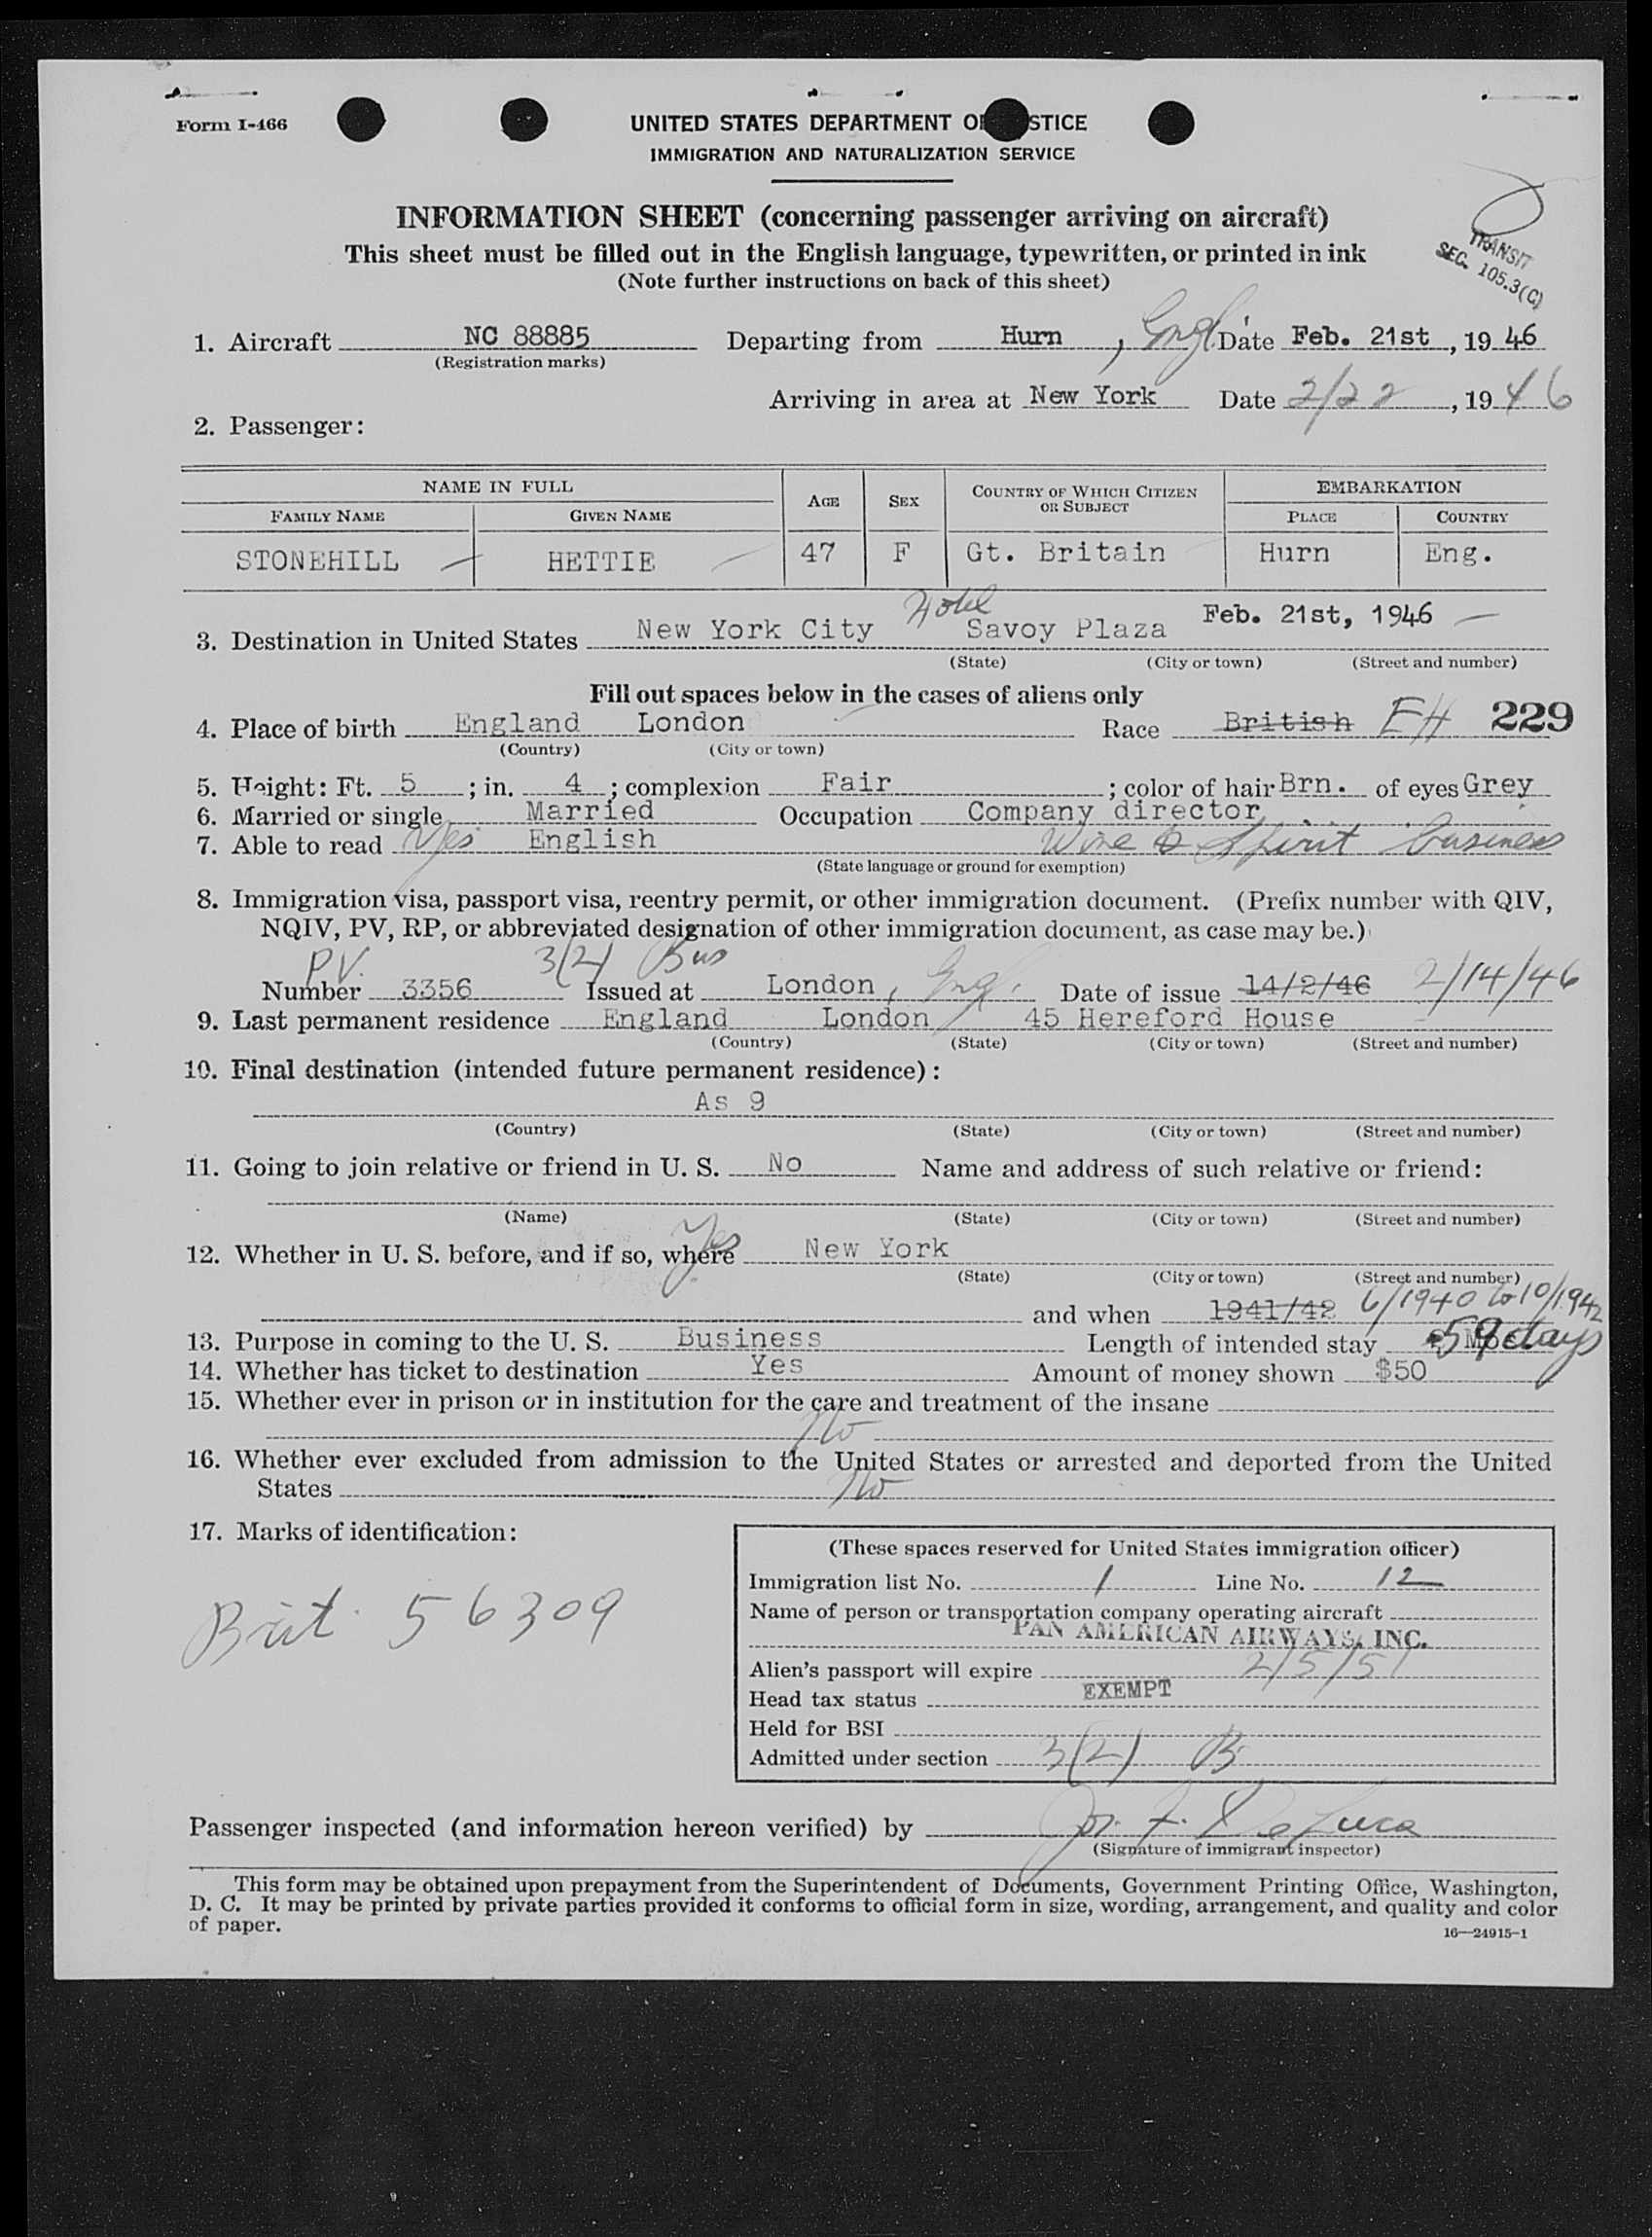 Form I-466
UNITED STATES DEPARTMENT OF JUSTICE
IMMIGRATION AND NATURALIZATION SERVICE
INFORMATION SHEET (concerning passenger arriving on aircraft)
This sheet must be filled out in the English language, typewritten, or printed in ink
(Note further instructions on back of this sheet)
TRANSIT
SEC. 105.3(C)
1. Aircraft NC 88885 Departing from Hurn, Engl. Date Feb. 21st, 1946
(Registration marks)
Arriving in area at New York Date 2/22, 1946
2. Passenger:
NAME IN FULL AGE SEX COUNTRY OF WHICH CITIZEN OR SUBJECT EMBARKATION
FAMILY NAME GIVEN NAME PLACE COUNTRY
STONEHILL HETTIE 47 F Gt. Britain Hurn Eng.
3. Destination in United States New York City Hotel Savoy Plaza Feb. 21st, 1946
(State) (City or town) (Street and number)
Fill out spaces below in the cases of aliens only
4. Place of birth England London Race British EH 229
(Country) (City or town)
5. Height: Ft. 5 ; in. 4 ; complexion Fair ; color of hair Brn. of eyes Grey
6. Married or single Married Occupation Company director
7. Able to read Yes English Wine & Spirit business
(State language or ground for exemption)
8. Immigration visa, passport visa, reentry permit, or other immigration document. (Prefix number with QIV,
NQIV, PV, RP, or abbreviated designation of other immigration document, as case may be.)
P.V. 3(2) Bus
Number 3356 Issued at London, Engl. Date of issue 14/2/46 2/14/46
9. Last permanent residence England London 45 Hereford House
(Country) (State) (City or town) (Street and number)
10. Final destination (intended future permanent residence):
As 9
(Country) (State) (City or town) (Street and number)
11. Going to join relative or friend in U. S. No Name and address of such relative or friend:
(Name) (State) (City or town) (Street and number)
12. Whether in U. S. before, and if so, where Yes New York
(State) (City or town) (Street and number)
and when 1941/42 6/1940 to 10/1942
13. Purpose in coming to the U. S. Business Length of intended stay 59 days
14. Whether has ticket to destination Yes Amount of money shown $50
15. Whether ever in prison or in institution for the care and treatment of the insane
No
16. Whether ever excluded from admission to the United States or arrested and deported from the United
States No
17. Marks of identification:
Brit. 56309
(These spaces reserved for United States immigration officer)
Immigration list No. 1 Line No. 12
Name of person or transportation company operating aircraft
PAN AMERICAN AIRWAYS, INC.
Alien's passport will expire 2/5/51
Head tax status EXEMPT
Held for BSI
Admitted under section 3(2) B
Passenger inspected (and information hereon verified) by Jos. F. DeLuca
(Signature of immigrant inspector)
This form may be obtained upon prepayment from the Superintendent of Documents, Government Printing Office, Washington,
D. C. It may be printed by private parties provided it conforms to official form in size, wording, arrangement, and quality and color
of paper.
16—24915-1